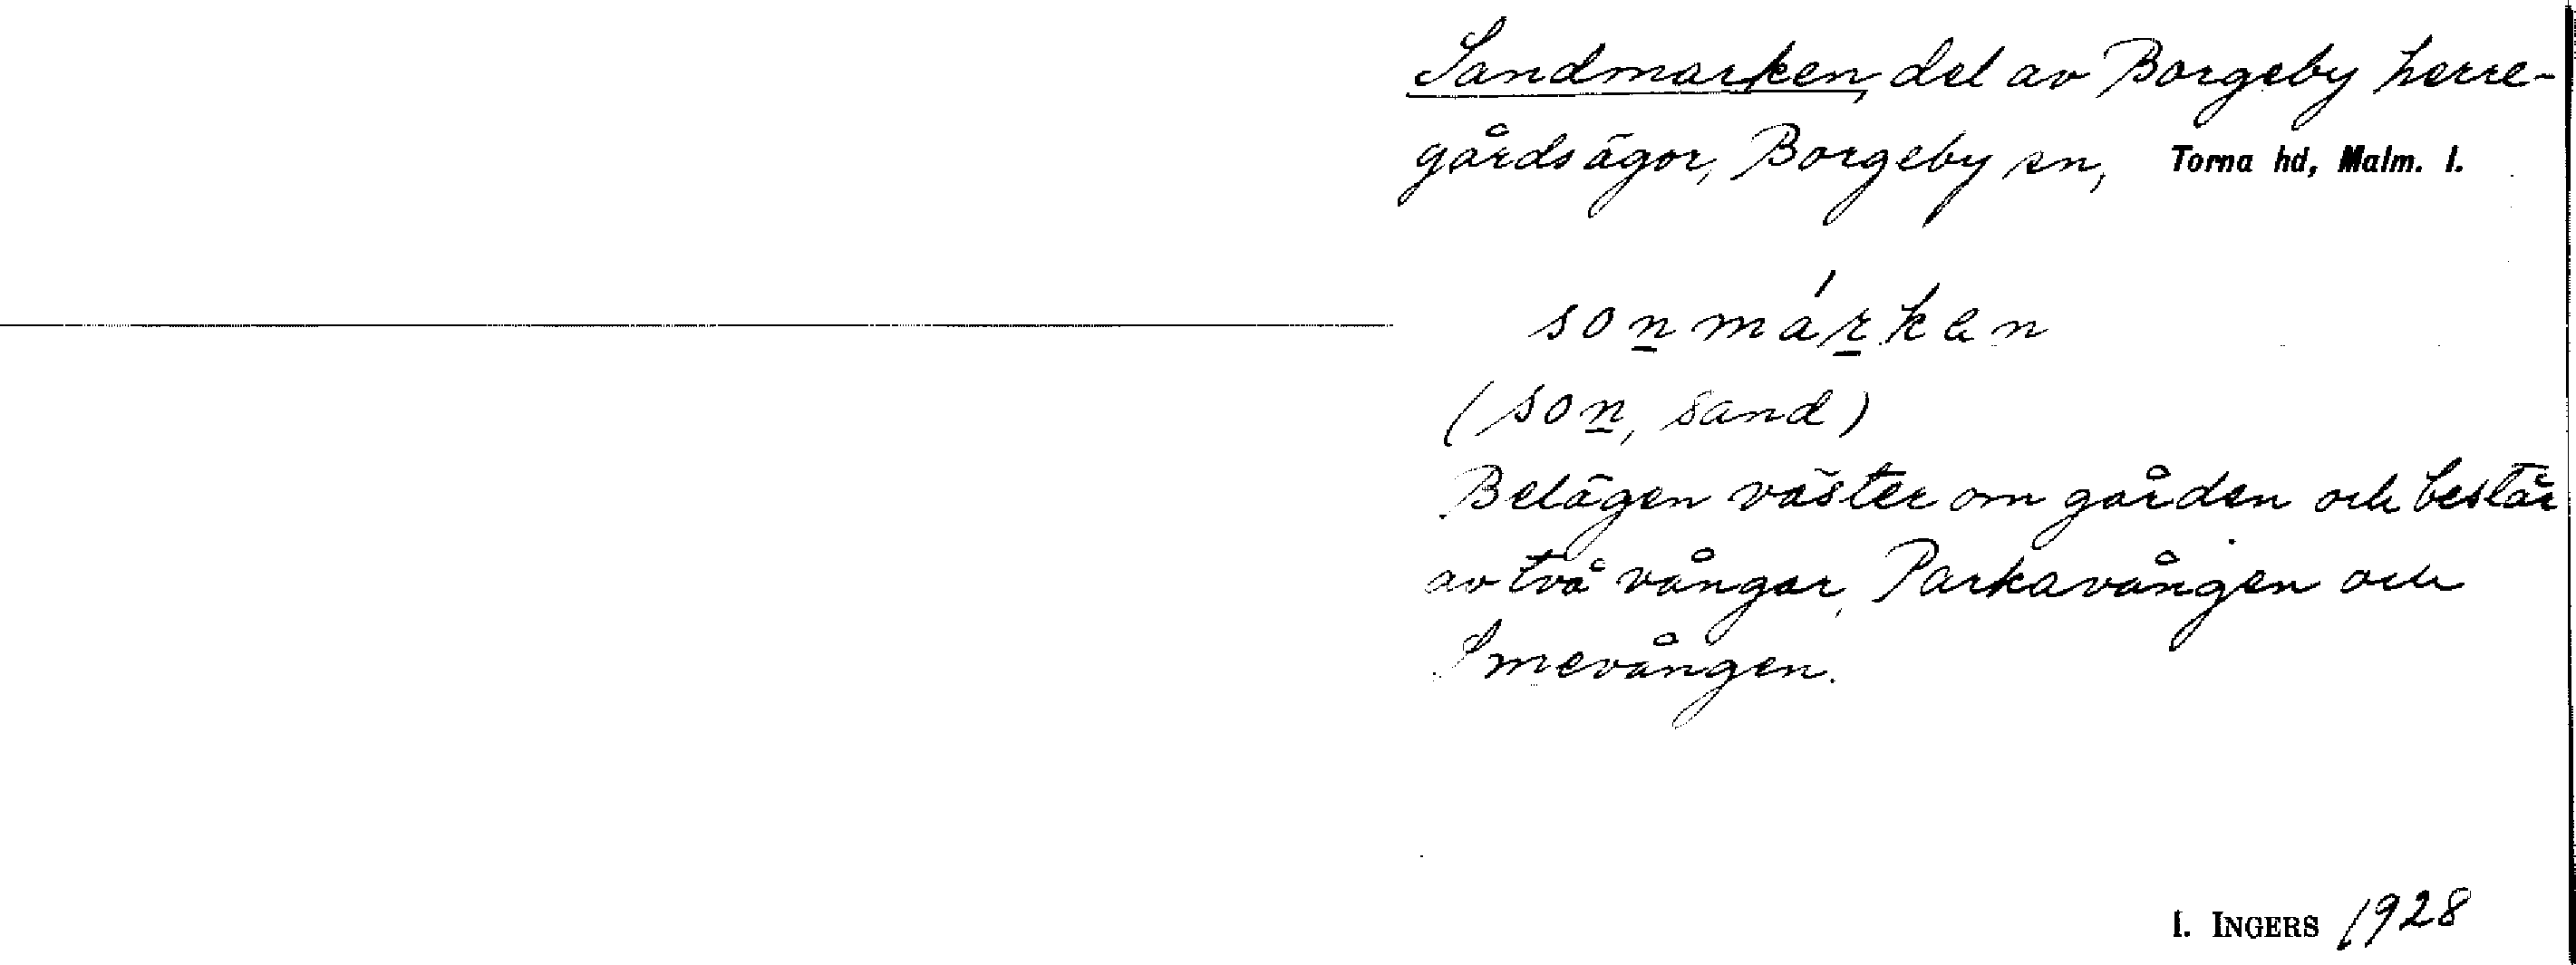 Sandmarken, del av Borgeby herre-
gårdsägor, Borgeby sn, Torna hd, Malm. l.
sonmárken
(son, sand)
Belägen väster om gården och består
av två vångar, Parkavången och
Smevången.
I. INGERS 1928